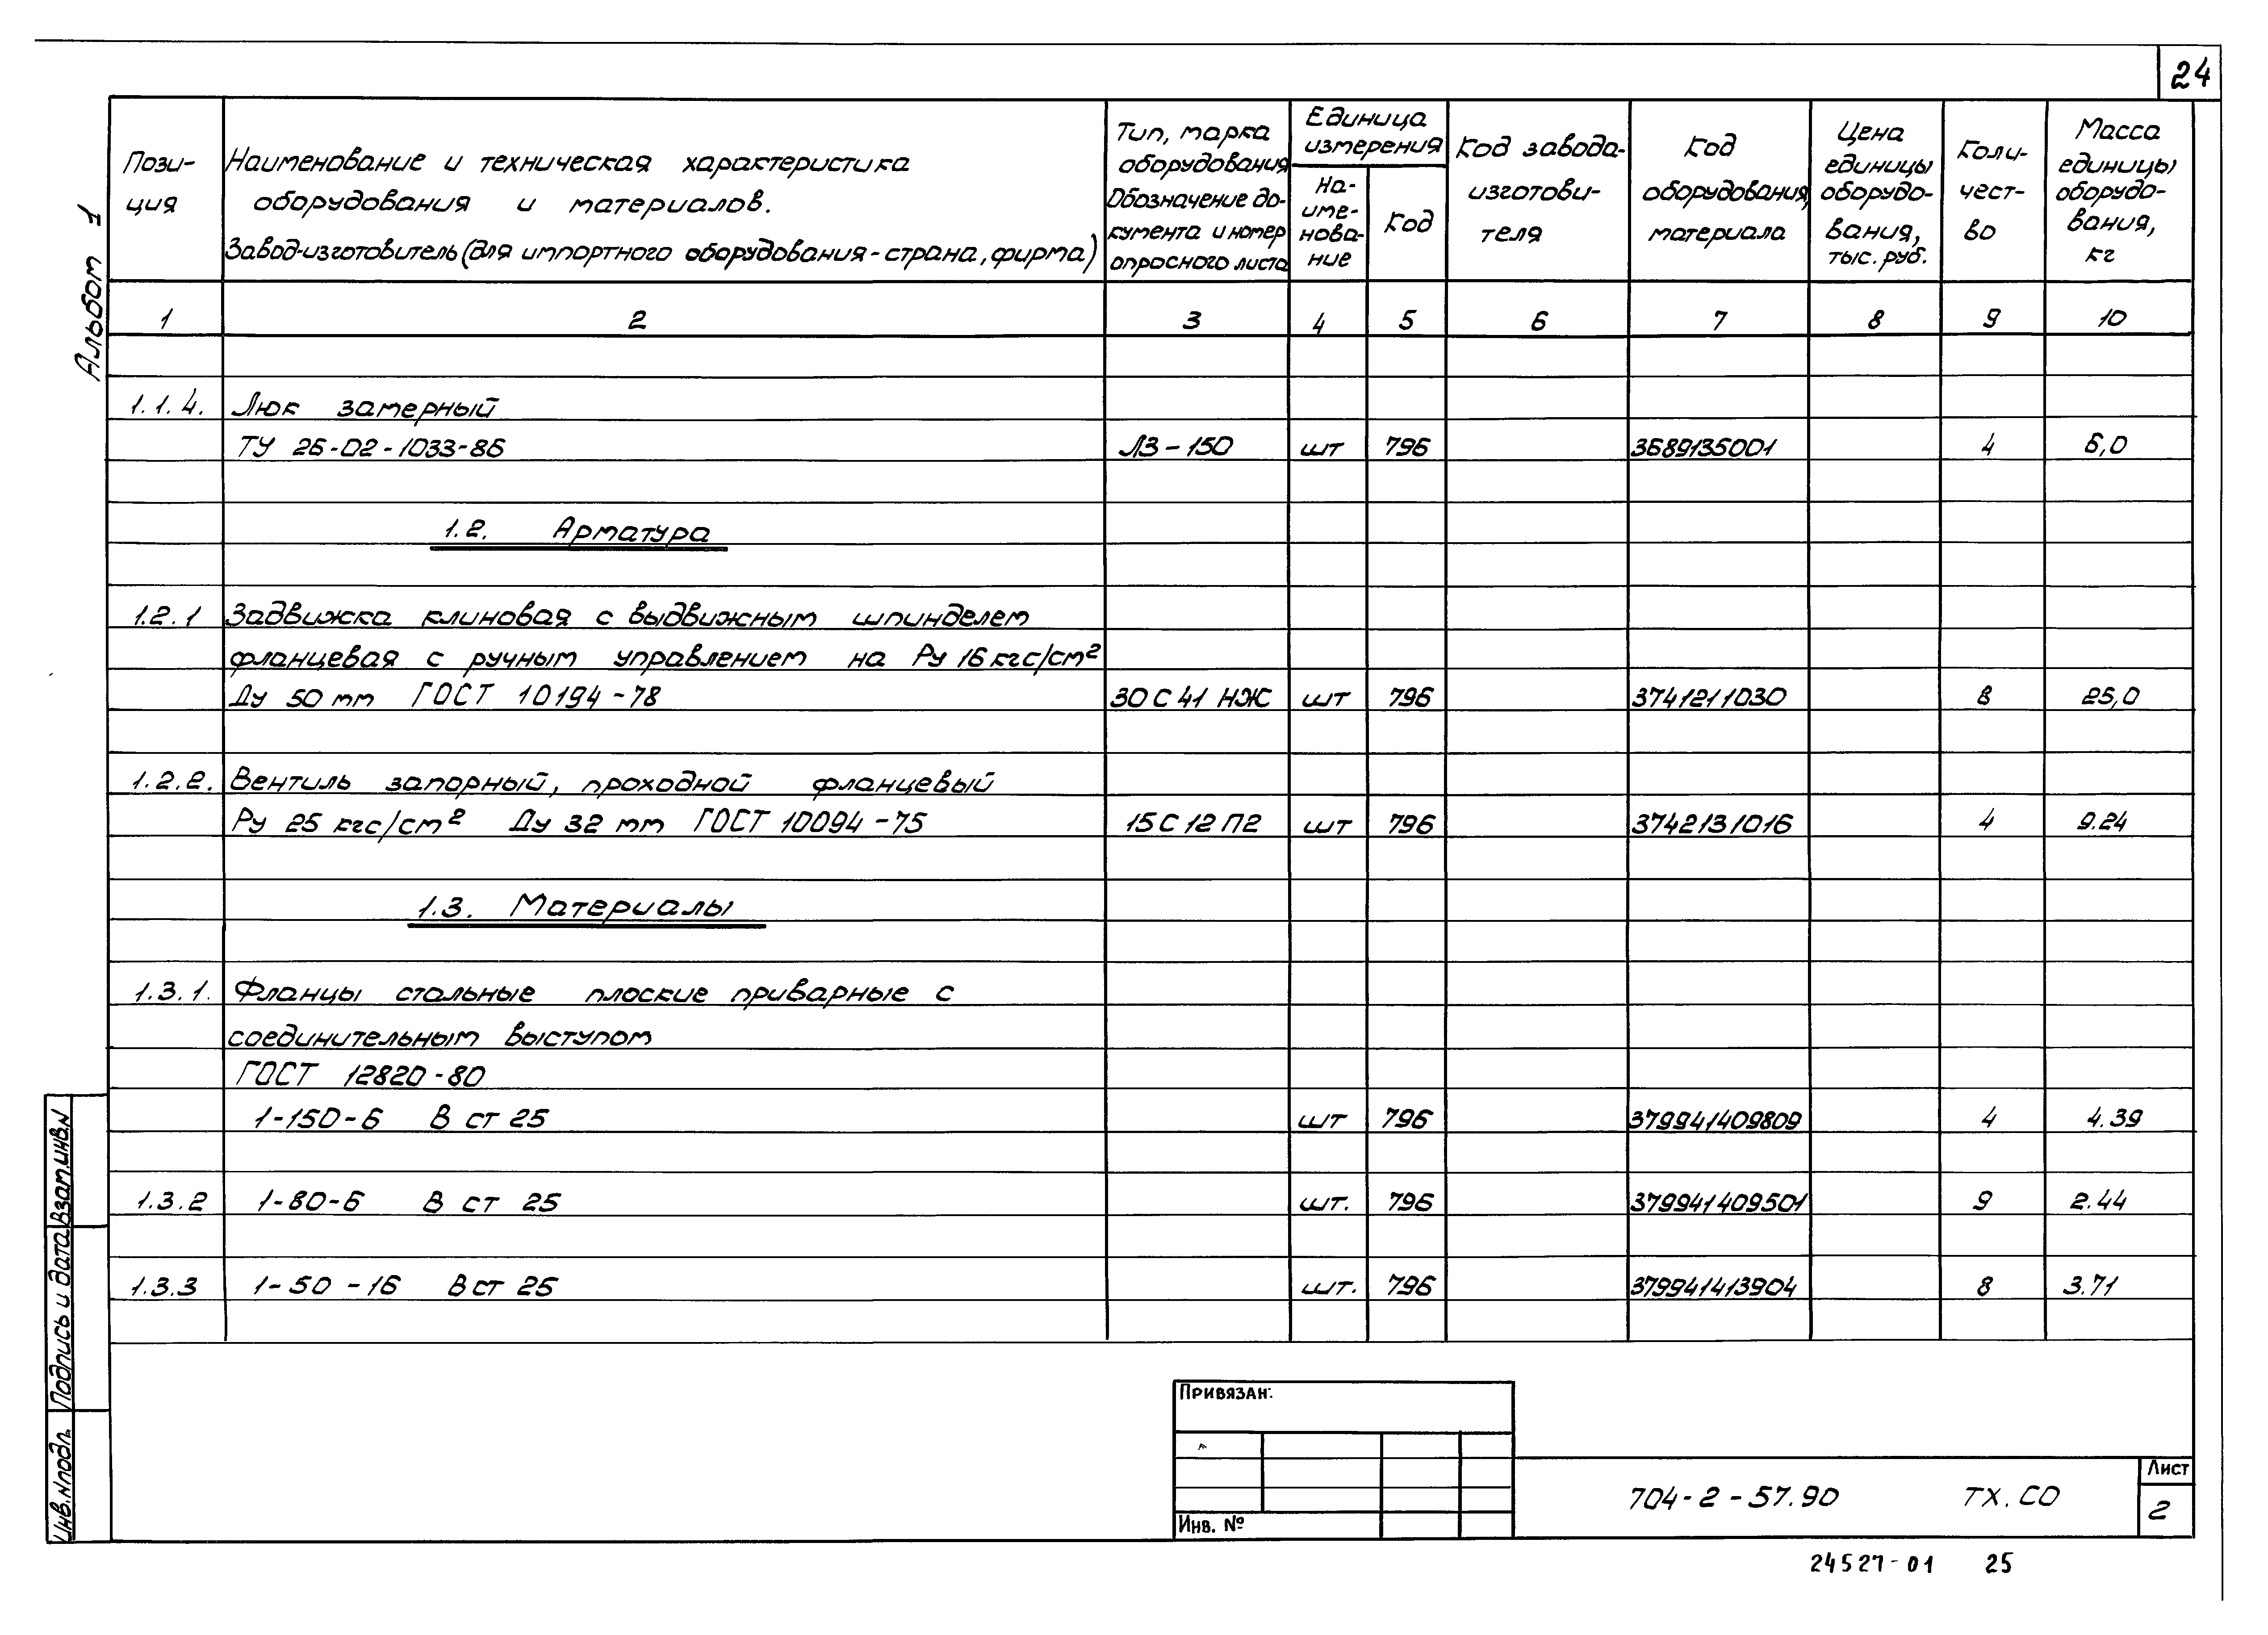 24
Альбом 1
Пози-
ция
Наименование и техническая характеристика
оборудования и материалов.
Завод-изготовитель (для импортного оборудования - страна, фирма)
Тип, марка
оборудования
Обозначение до-
кумента и номер
опросного листа
Единица
измерения
На-
име-
нова-
ние
Код
Код завода-
изготови-
теля
Код
оборудования,
материала
Цена
единицы
оборудо-
вания,
тыс. руб.
Коли-
чест-
во
Масса
единицы
оборудо-
вания,
кг
1 2 3 4 5 6 7 8 9 10
1.1.4. Люк замерный
ТУ 26-02-1033-86 ЛЗ-150 шт 796 3689135001 4 6,0
1.2. Арматура
1.2.1 Задвижка клиновая с выдвижным шпинделем
фланцевая с ручным управлением на Ру 16 кгс/см²
Ду 50 мм ГОСТ 10194-78 30 С 41 НЖ шт 796 3741211030 8 25,0
1.2.2. Вентиль запорный, проходной фланцевый
Ру 25 кгс/см² Ду 32 мм ГОСТ 10094-75 15 С 12 П2 шт 796 3742131016 4 9.24
1.3. Материалы
1.3.1. Фланцы стальные плоские приварные с
соединительным выступом
ГОСТ 12820-80
1-150-6 В ст 25 шт 796 379941409809 4 4.39
1.3.2 1-80-6 В ст 25 шт. 796 379941409501 9 2.44
1.3.3 1-50-16 В ст 25 шт. 796 379941413904 8 3.71
Взам.инв.N
Подпись и дата
Инв.Nподл.
Привязан:
Инв. №
704-2-57.90 ТХ.СО
Лист
2
24527-01 25